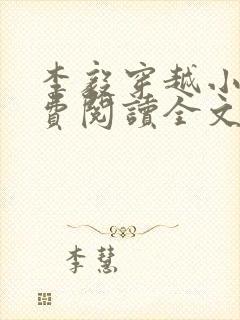 李毅穿越小
費閱讀全文
李慧